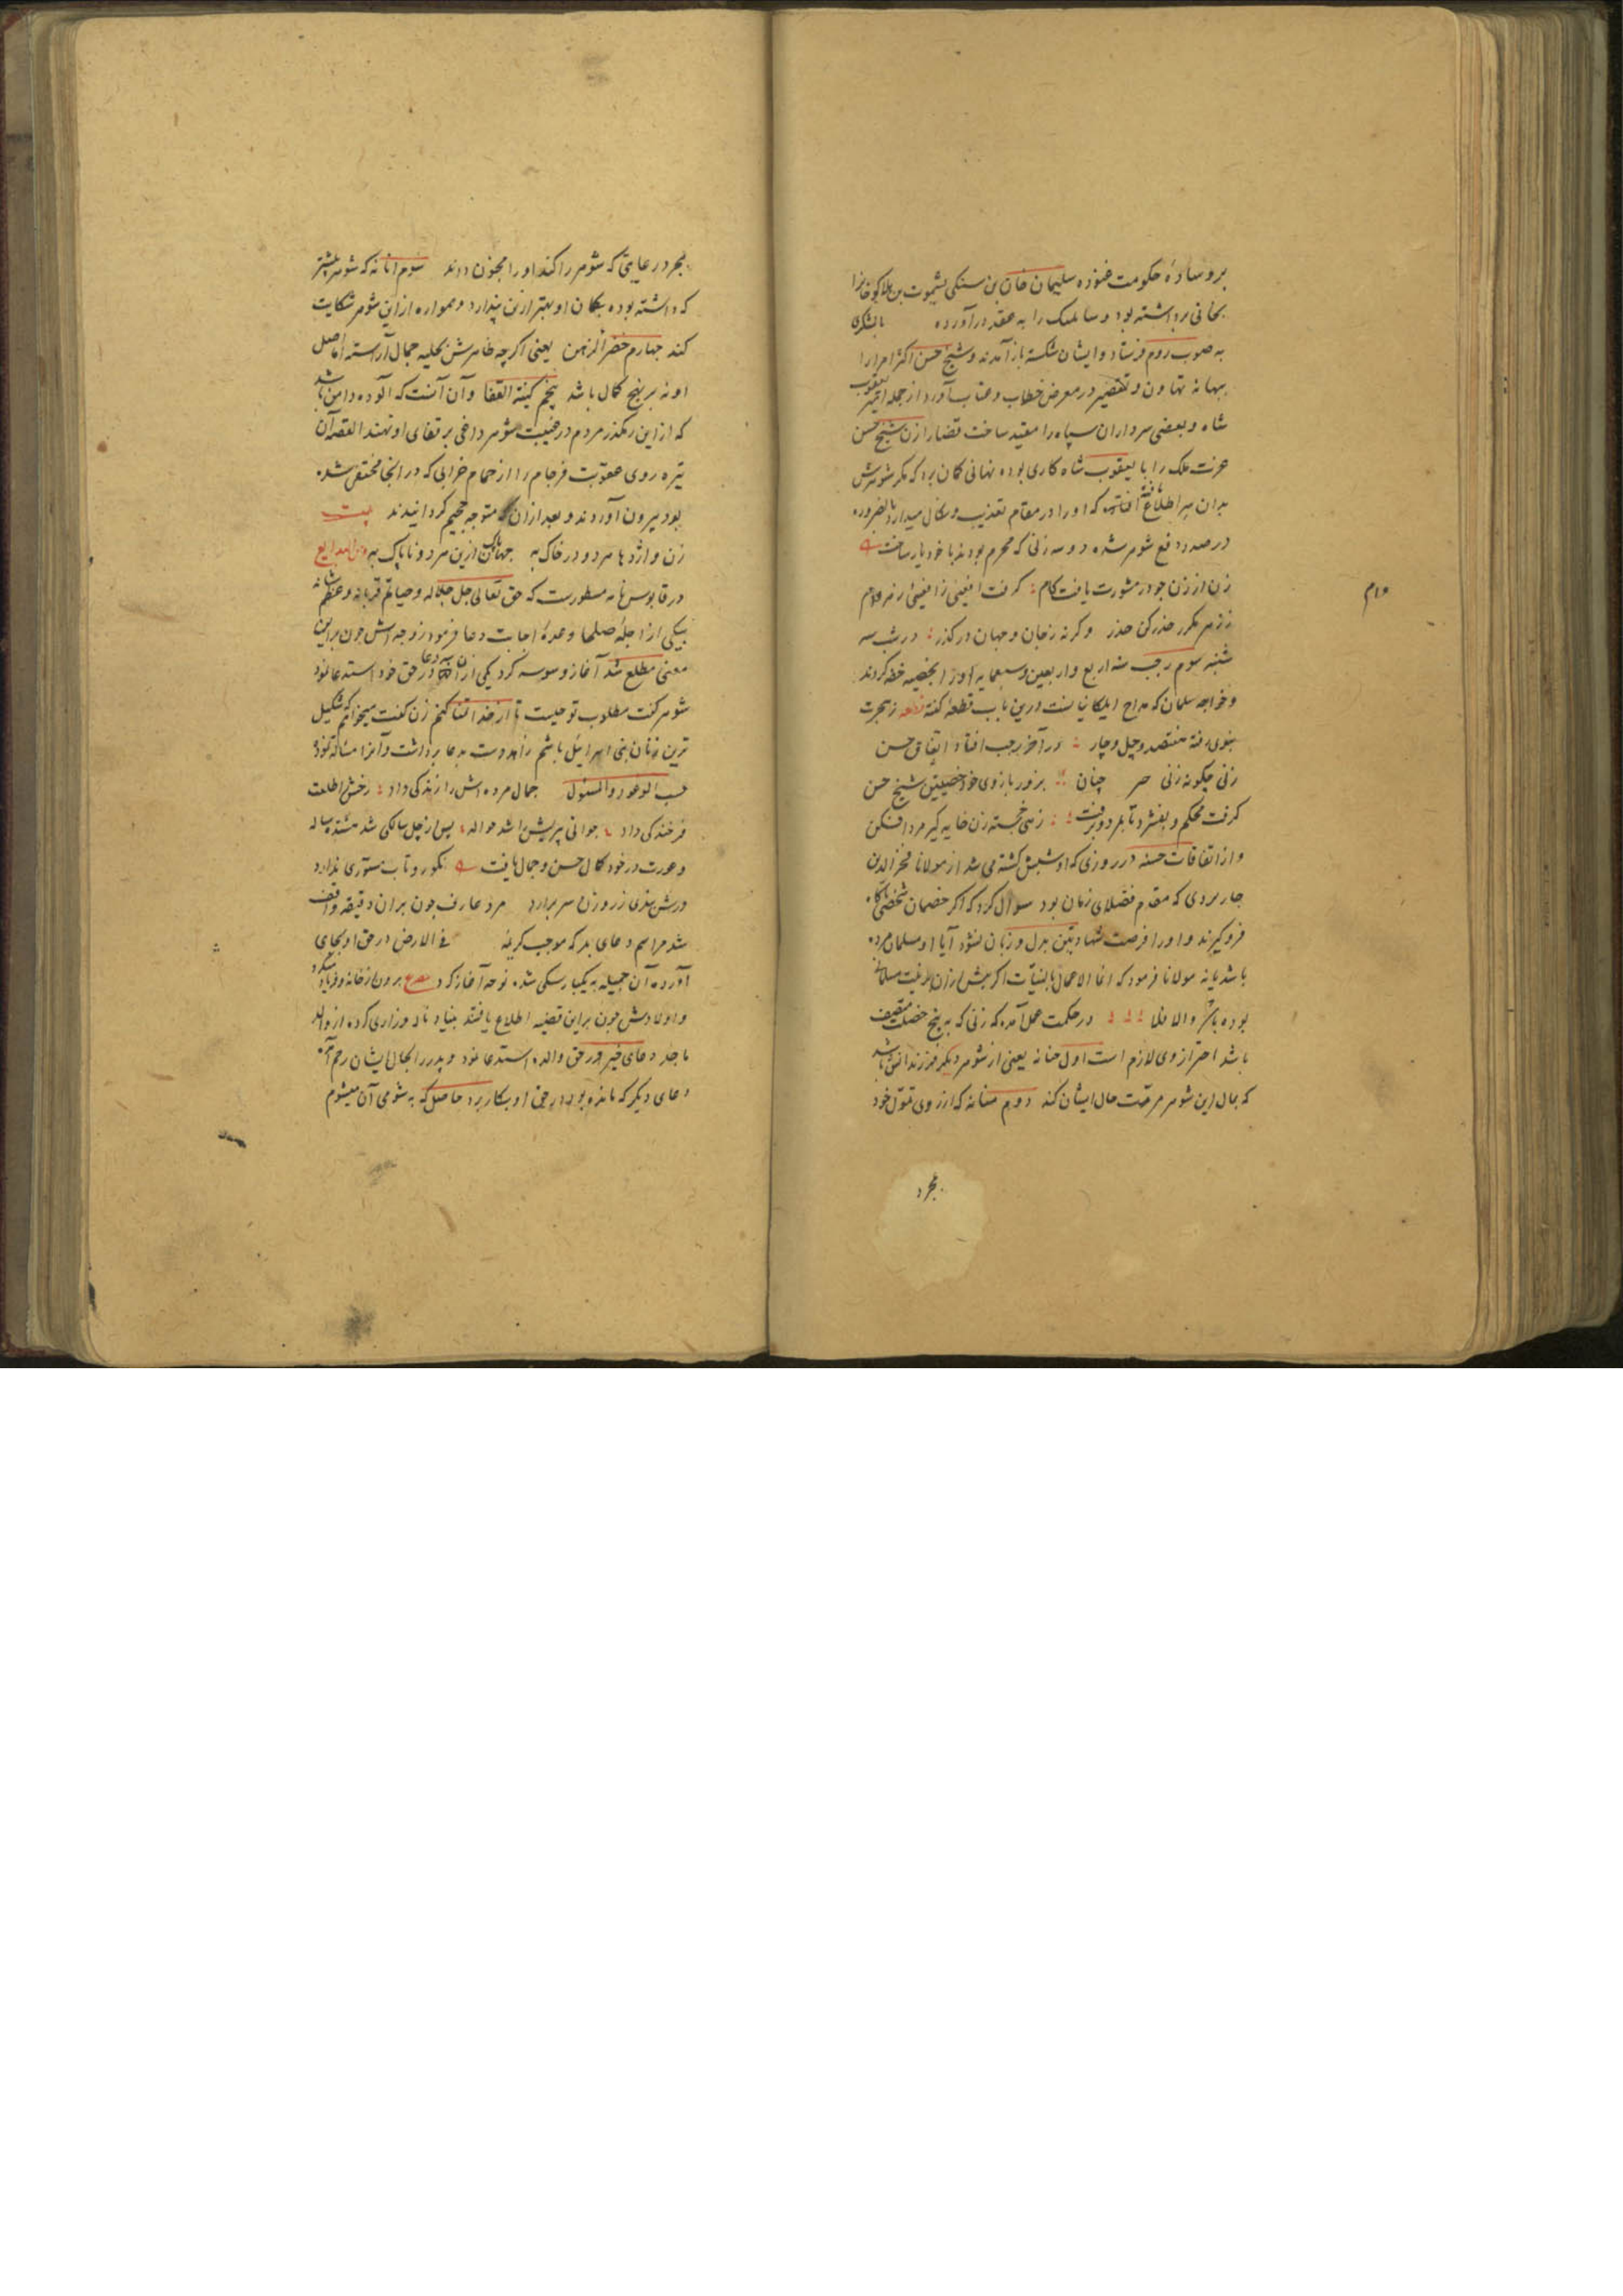 بر وسادهٔ حکومت غنوده سلیمان خان بن سنکی بن یشموت بن هلاکو خانرا
بخانی برداشته بود و ساتی بیک را به عقد درآورده با لشکری
به صوب روم فرستاد و ایشان شکسته باز آمدند و شیخ حسن اکثر امرا را
ببهانه تهاون و تقصیر در معرض خطاب و عتاب آورد از جمله امیر یعقوب
شاه و بعضی سرداران سپاه را مقید ساخت قضارا زن شیخ حسن
عزت ملک را با یعقوب شاه کاری بوده نهانی کمان برد که مکر شوهرش
بدان سر اطلاع یافته که او را در مقام تعذیب و نکال میدارد بالضروره
در صدد دفع شوهر شده دو سه زنی که محرم بودند با خود یار ساخت
زن از زن جو در مشورت یافت کام کرفت افعیی از افعیی زهر وام
حذر کن حذر وکرنه ز جان و جهان در کذر در شب سه
شنبه سوم رجب سنه اربع و اربعین و سبعمایه او را خفه کردند
و خواجه سلمان که مداح ایلکانیانست درین باب قطعه کفته قطعه ز هجرت
نبوی رفته هفتصد و چل و چار در آخر رجب افتاد اتفاق حسن
زنی چکونه زنی خیر چنان بزور بازوی خود خصیتین شیخ حسن
کرفت محکم و بفشرد تا بمرد و برفت زهی خجسته زن خایه کیر مرد افکن
و از اتفاقات حسنه در روزی که او شبش کشته می شد از مولانا فخر الدین
جاربردی که مقدم فضلای زمان بود سوال کرد که اکر خصمان شخصی ناکاه
فرو کیرند و او را فرصت شهادتین بدل و زبان نشود آیا او مسلمان مرده
باشد یا نه مولانا فرمود که انما الاعمال بالنیات اکر پیش از آن بر نیت مسلمانی
بوده باشد والا فلا در حکمت عملی آمده که زنی که به پنج خصلت متصف
باشد احتراز از وی لازم است اول حنانه یعنی از شوهر دیکر فرزندانش باشد
که بمال این شوهر مرمت حال ایشان کند دوم منانه که از روی تمول خود
بمجرد
بمجرد رعایتی که شوهر را کند او را مجنون داند سوم انانه که شوهر پیشتر
که داشته بوده بکمان او بهتر ازین پندارد و همواره از این شوهر شکایت
کند جهارم خضر الدمن یعنی اکرچه ظاهرش بحلیه جمال آراسته اما اصل
او نه بر نهج کمال باشد پنجم کیة القفا و آن آنست که آلوده دامن باشد
که از این رهکذر مردم در غیبت شوهر داغی بر قفای او نهند القصه آن
تیره روی عقوبت فرجام را از حمام خرابی که در انجا مختفی شده
بود بیرون آوردند و بعد از ان متوجه جحیم کردانیدند بیت
زن و اژدها هر دو در خاک به جهان پاک ازین هر دو ناپاک به من البدایع
در قابوس نامه مسطورست که حق تعالی جل جلاله
بیکی از اجلهٔ صلحا وعدهٔ اجابت سه دعا فرمود زوجه اش چون بر این
معنی مطلع شد آغاز وسوسه کرد یکی از آن سه دعا در حق خود استدعا نمود
شوهر کفت مطلوب تو چیست تا از خدا التماس کنم زن کفت میخواهم که شکیل
ترین زنان بنی اسرائیل باشم زاهد دست بدعا برداشت و آنرا مسألت نمود
حسب الموعود والمسئول جمال مرده اش را زندکی داد رخش را طلعت
فرخندکی داد جوانی پیریش را شد حواله پس از چل سالکی شد هشده ساله
و عورت در خود کمال حسن و جمال یافت نکورو تاب مستوری ندارد
درش بندی ز روزن سر برآرد مرد عارف چون بر ان دقیقه واقف
شد مراسم دعای بد که موجب کریه فی الارض در حق او بجای
آورده آن جمیله به یکبار سکی شده نوحه آغاز کرد مصرع برون از خانه و فریاد میکرد
و اولادش چون بر این قضیه اطلاع یافتند بنیاد ناله و زاری کرده از والد
ماجد دعای خیر در حق والده استدعا نمود و پدر را بحال ایشان رحم آمده
دعای دیکر که مانده بود در حق او بکار برد حاصل که به شومی آن میشوم